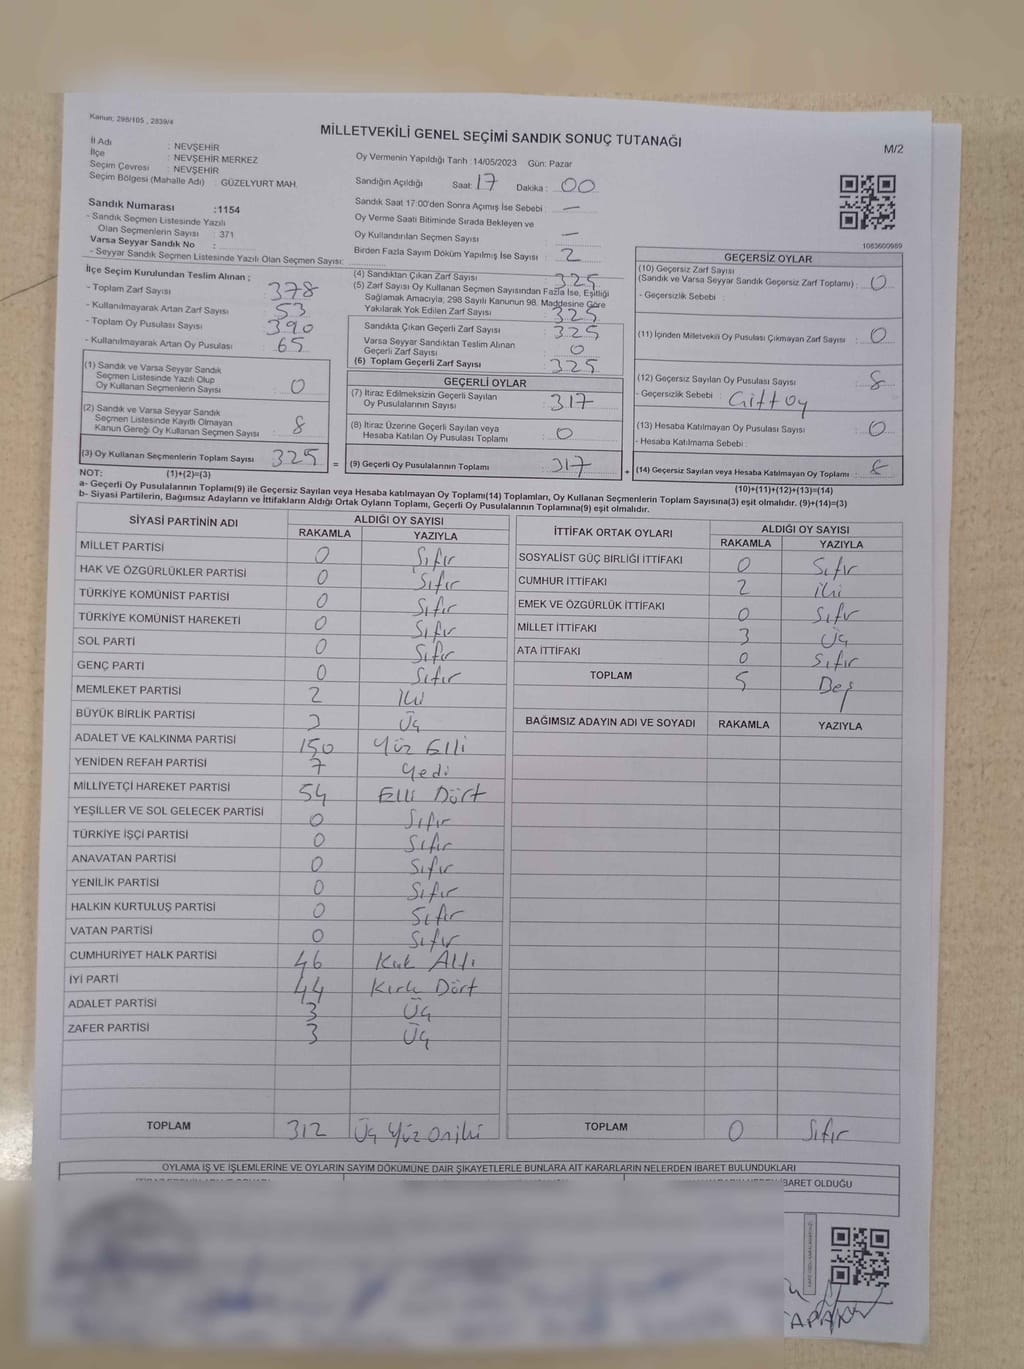 Kanun; 298/105 , 2839/4
MİLLETVEKİLİ GENEL SEÇİMİ SANDIK SONUÇ TUTANAĞI
M/2
İl Adı : NEVŞEHİR
İlçe : NEVŞEHİR MERKEZ
Seçim Çevresi : NEVŞEHİR
Seçim Bölgesi (Mahalle Adı) : GÜZELYURT MAH.
Sandık Numarası :1154
- Sandık Seçmen Listesinde Yazılı
Olan Seçmenlerin Sayısı : 371
Varsa Seyyar Sandık No :
- Seyyar Sandık Seçmen Listesinde Yazılı Olan Seçmen Sayısı:
Oy Vermenin Yapıldığı Tarih :14/05/2023 Gün: Pazar
Sandığın Açıldığı Saat: 17 Dakika : 00
Sandık Saat 17:00'den Sonra Açılmış İse Sebebi : —
Oy Verme Saati Bitiminde Sırada Bekleyen ve
Oy Kullandırılan Seçmen Sayısı —
Birden Fazla Sayım Döküm Yapılmış İse Sayısı : 2
1083600989
İlçe Seçim Kurulundan Teslim Alınan ;
- Toplam Zarf Sayısı : 378
- Kullanılmayarak Artan Zarf Sayısı : 53
- Toplam Oy Pusulası Sayısı : 390
- Kullanılmayarak Artan Oy Pusulası : 65
(1) Sandık ve Varsa Seyyar Sandık
Seçmen Listesinde Yazılı Olup
Oy Kullanan Seçmenlerin Sayısı : 0
(2) Sandık ve Varsa Seyyar Sandık
Seçmen Listesinde Kayıtlı Olmayan
Kanun Gereği Oy Kullanan Seçmen Sayısı : 8
(3) Oy Kullanan Seçmenlerin Toplam Sayısı : 325 =
(4) Sandıktan Çıkan Zarf Sayısı : 325
(5) Zarf Sayısı Oy Kullanan Seçmen Sayısından Fazla İse, Eşitliği
Sağlamak Amacıyla; 298 Sayılı Kanunun 98. Maddesine Göre
Yakılarak Yok Edilen Zarf Sayısı : 325
Sandıkta Çıkan Geçerli Zarf Sayısı : 325
Varsa Seyyar Sandıktan Teslim Alınan
Geçerli Zarf Sayısı : 0
(6) Toplam Geçerli Zarf Sayısı : 325
GEÇERLİ OYLAR
(7) İtiraz Edilmeksizin Geçerli Sayılan
Oy Pusulalarının Sayısı : 317
(8) İtiraz Üzerine Geçerli Sayılan veya
Hesaba Katılan Oy Pusulası Toplamı : 0
(9) Geçerli Oy Pusulalarının Toplamı : 317 +
GEÇERSİZ OYLAR
(10) Geçersiz Zarf Sayısı
(Sandık ve Varsa Seyyar Sandık Geçersiz Zarf Toplamı) : 0
- Geçersizlik Sebebi :
(11) İçinden Milletvekili Oy Pusulası Çıkmayan Zarf Sayısı : 0
(12) Geçersiz Sayılan Oy Pusulası Sayısı : 8
- Geçersizlik Sebebi : Çift Oy
(13) Hesaba Katılmayan Oy Pusulası Sayısı : 0
- Hesaba Katılmama Sebebi :
(14) Geçersiz Sayılan veya Hesaba Katılmayan Oy Toplamı : 8
NOT: (1)+(2)=(3)
(10)+(11)+(12)+(13)=(14)
a- Geçerli Oy Pusulalarının Toplamı(9) ile Geçersiz Sayılan veya Hesaba katılmayan Oy Toplamı(14) Toplamları, Oy Kullanan Seçmenlerin Toplam Sayısına(3) eşit olmalıdır. (9)+(14)=(3)
b- Siyasi Partilerin, Bağımsız Adayların ve İttifakların Aldığı Ortak Oyların Toplamı, Geçerli Oy Pusulalarının Toplamına(9) eşit olmalıdır.
SİYASİ PARTİNİN ADI ALDIĞI OY SAYISI
RAKAMLA YAZIYLA
MİLLET PARTİSİ 0 Sıfır
HAK VE ÖZGÜRLÜKLER PARTİSİ 0 Sıfır
TÜRKİYE KOMÜNİST PARTİSİ 0 Sıfır
TÜRKİYE KOMÜNİST HAREKETİ 0 Sıfır
SOL PARTİ 0 Sıfır
GENÇ PARTİ 0 Sıfır
MEMLEKET PARTİSİ 2 İki
BÜYÜK BİRLİK PARTİSİ 3 Üç
ADALET VE KALKINMA PARTİSİ 150 Yüz Elli
YENİDEN REFAH PARTİSİ 7 Yedi
MİLLİYETÇİ HAREKET PARTİSİ 54 Elli Dört
YEŞİLLER VE SOL GELECEK PARTİSİ 0 Sıfır
TÜRKİYE İŞÇİ PARTİSİ 0 Sıfır
ANAVATAN PARTİSİ 0 Sıfır
YENİLİK PARTİSİ 0 Sıfır
HALKIN KURTULUŞ PARTİSİ 0 Sıfır
VATAN PARTİSİ 0 Sıfır
CUMHURİYET HALK PARTİSİ 46 Kırk Altı
İYİ PARTİ 44 Kırk Dört
ADALET PARTİSİ 3 Üç
ZAFER PARTİSİ 3 Üç
TOPLAM 312 Üç Yüz Oniki
İTTİFAK ORTAK OYLARI ALDIĞI OY SAYISI
RAKAMLA YAZIYLA
SOSYALİST GÜÇ BİRLİĞİ İTTİFAKI 0 Sıfır
CUMHUR İTTİFAKI 2 iki
EMEK VE ÖZGÜRLÜK İTTİFAKI 0 Sıfır
MİLLET İTTİFAKI 3 Üç
ATA İTTİFAKI 0 Sıfır
TOPLAM 5 Beş
BAĞIMSIZ ADAYIN ADI VE SOYADI RAKAMLA YAZIYLA
TOPLAM 0 Sıfır
OYLAMA İŞ VE İŞLEMLERİNE VE OYLARIN SAYIM DÖKÜMÜNE DAİR ŞİKAYETLERLE BUNLARA AİT KARARLARIN NELERDEN İBARET BULUNDUKLARI
İBARET OLDUĞU